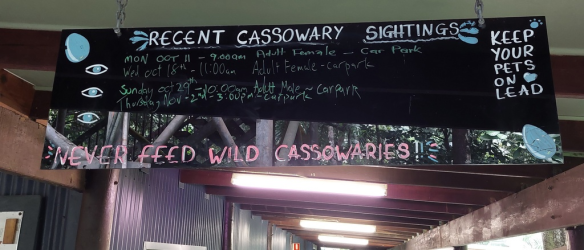 RECENT CASSOWARY SIGHTINGS
MON OCT 11 - 9:00am Adult Female - Car Park
Wed Oct 18th - 11:00am Adult Female - carpark
Sunday Oct 29th - 10:00am Adult Male - Carpark
Thursday Nov - 2nd - 3:00pm - Carpark
NEVER FEED WILD CASSOWARIES!!
KEEP
YOUR
PETS
ON
LEAD